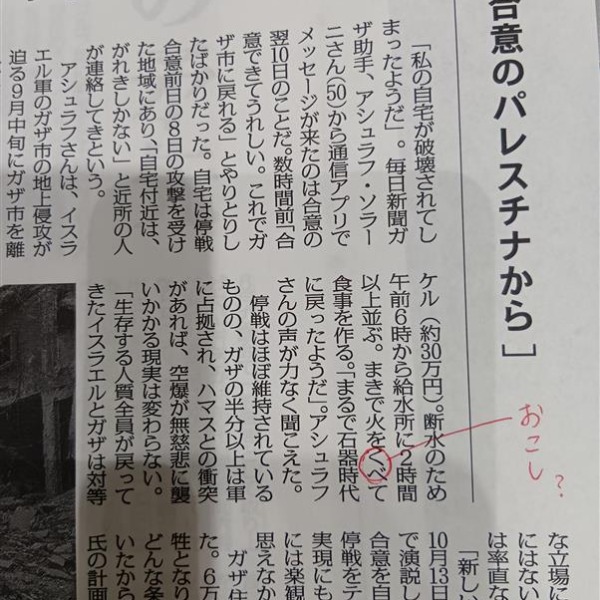 合意のパレスチナから］
「私の自宅が破壊されてし
まったようだ」。毎日新聞ガ
ザ助手、アシュラフ・ソラー
ニさん(50)から通信アプリで
メッセージが来たのは合意の
翌10日のことだ。数時間前、「合
意できてうれしい。これでガ
ザ市に戻れる」とやりとりし
たばかりだった。自宅は停戦
合意前日の8日の攻撃を受け
た地域にあり、「自宅付近は、
がれきしかない」と近所の人
が連絡してきという。
アシュラフさんは、イスラ
エル軍のガザ市の地上侵攻が
迫る9月中旬にガザ市を離
ケル（約30万円）。断水のため
午前6時から給水所に2時間
以上並ぶ。まきで火をくべて
食事を作る。「まるで石器時代
に戻ったようだ」。アシュラフ
さんの声が力なく聞こえた。
停戦はほぼ維持されている
ものの、ガザの半分以上は軍
に占拠され、ハマスとの衝突
があれば、空爆が無慈悲に襲
いかかる現実は変わらない。
「生存する人質全員が戻って
きたイスラエルとガザは対等
おこし?
な立場に
にはない
は率直な
「新しい
10月13日
で演説し
合意を自
停戦をテ
実現にも
には楽観
思えなか
ガザ住
た。6万
牲となり
どんな条
いたから
氏の計画